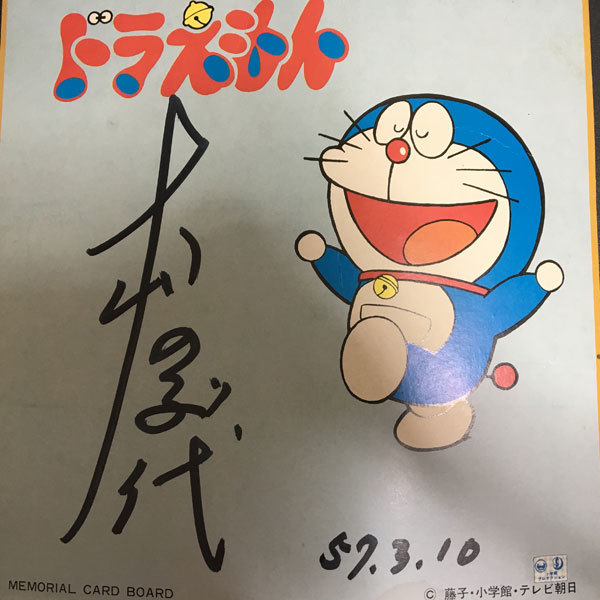 ドラえもん
大山のぶ代
57.3.10
MEMORIAL CARD BOARD
© 藤子・小学館・テレビ朝日